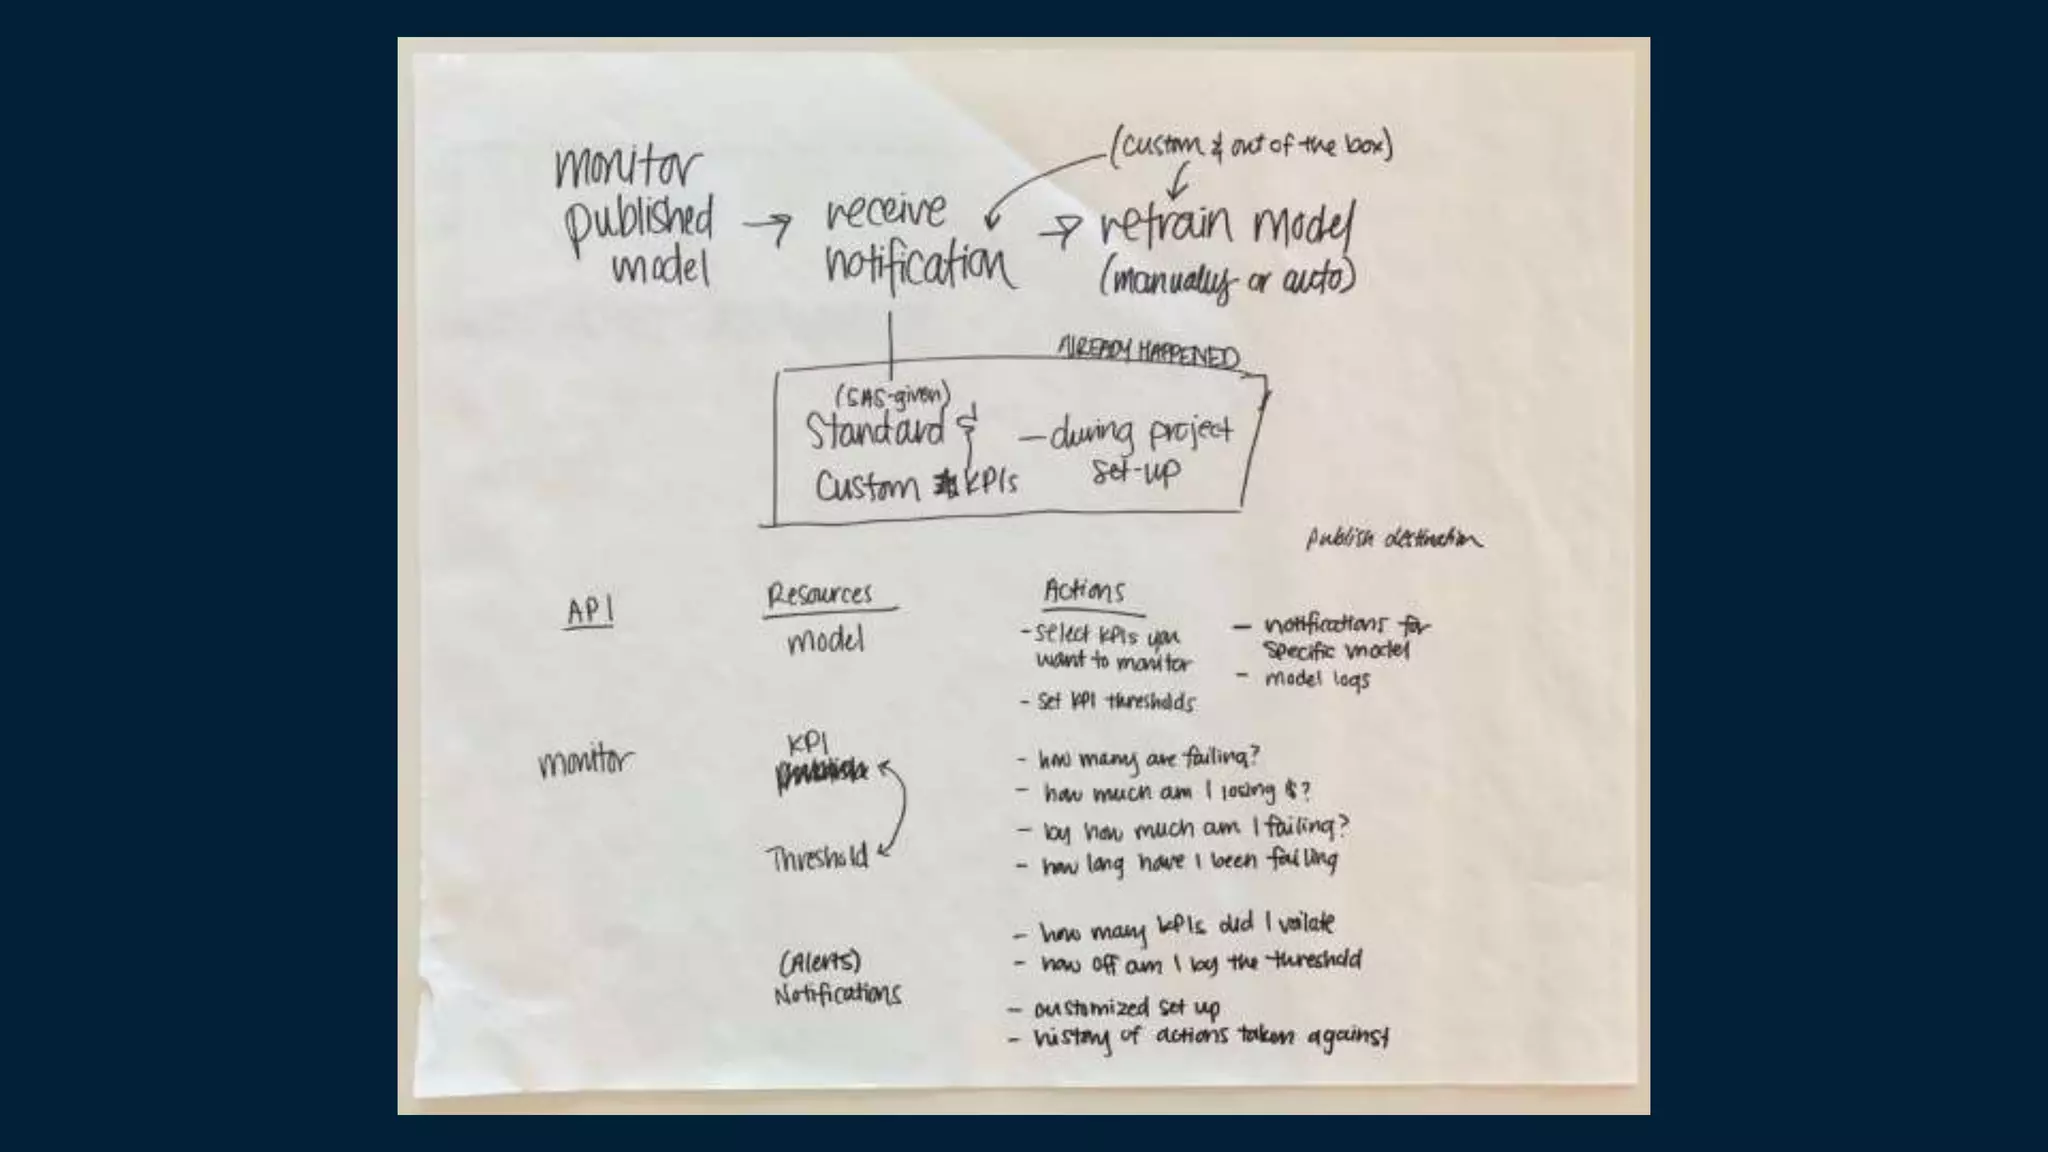 (custom & out of the box)
monitor
published
model
→ receive
notification
→ retrain model
(manually or auto)
ALREADY HAPPENED
(SAS-given)
Standard &
Custom KPIs
- during project
set-up
publish destination
API
Resources
Actions
model
- select KPIs you
want to monitor
- set KPI thresholds
- notifications for
specific model
- model logs
monitor
KPI
Threshold
- how many are failing?
- how much am I losing $?
- by how much am I failing?
- how long have I been failing
(Alerts)
Notifications
- how many KPIs did I voilate
- how off am I by the threshold
- customized set up
- history of actions taken against